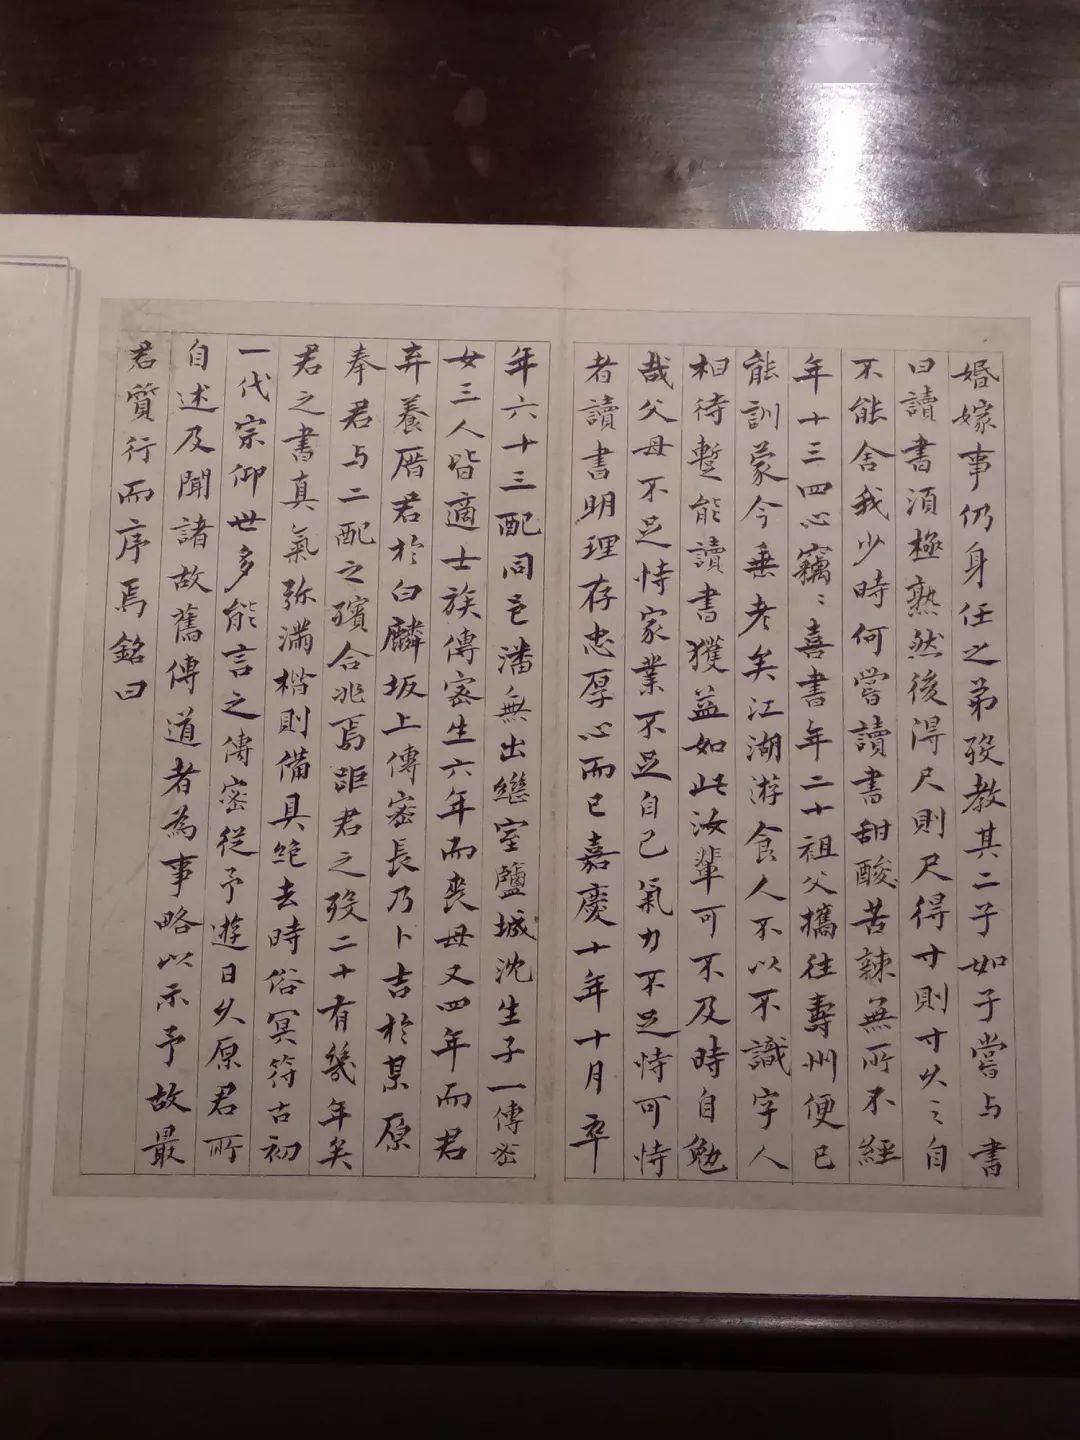 婚嫁事仍身任之弟歿教其二子如子嘗与書
曰讀書須極熟然後淂尺則尺得寸則寸久〻自
不能舍我少時何嘗讀書甜酸苦辣無所不經
年十三四心竊〻喜書年二十祖父攜往壽州便已
能訓蒙今垂老矣江湖游食人不以不識字人
相待蹔能讀書獲益如此汝輩可不及時自勉
哉父母不足恃家業不足自己氣力不足恃可恃
者讀書明理存忠厚心而已嘉慶十年十月卒
年六十三配同邑潘無出繼室廬城沈生子一傳密
女三人皆適士族傳密生六年而喪母又四年而君
弃養厝君於白麟坂上傳密長乃卜吉於某原
奉君与二配之殯合兆焉距君之歿二十有幾年矣
君之書真氣弥滿楷則備具絶去時俗冥符古初
一代宗仰世多能言之傳密從予遊日久原君所
自述及聞諸故舊傳道者為事略以示予故最
君質行而序焉銘曰